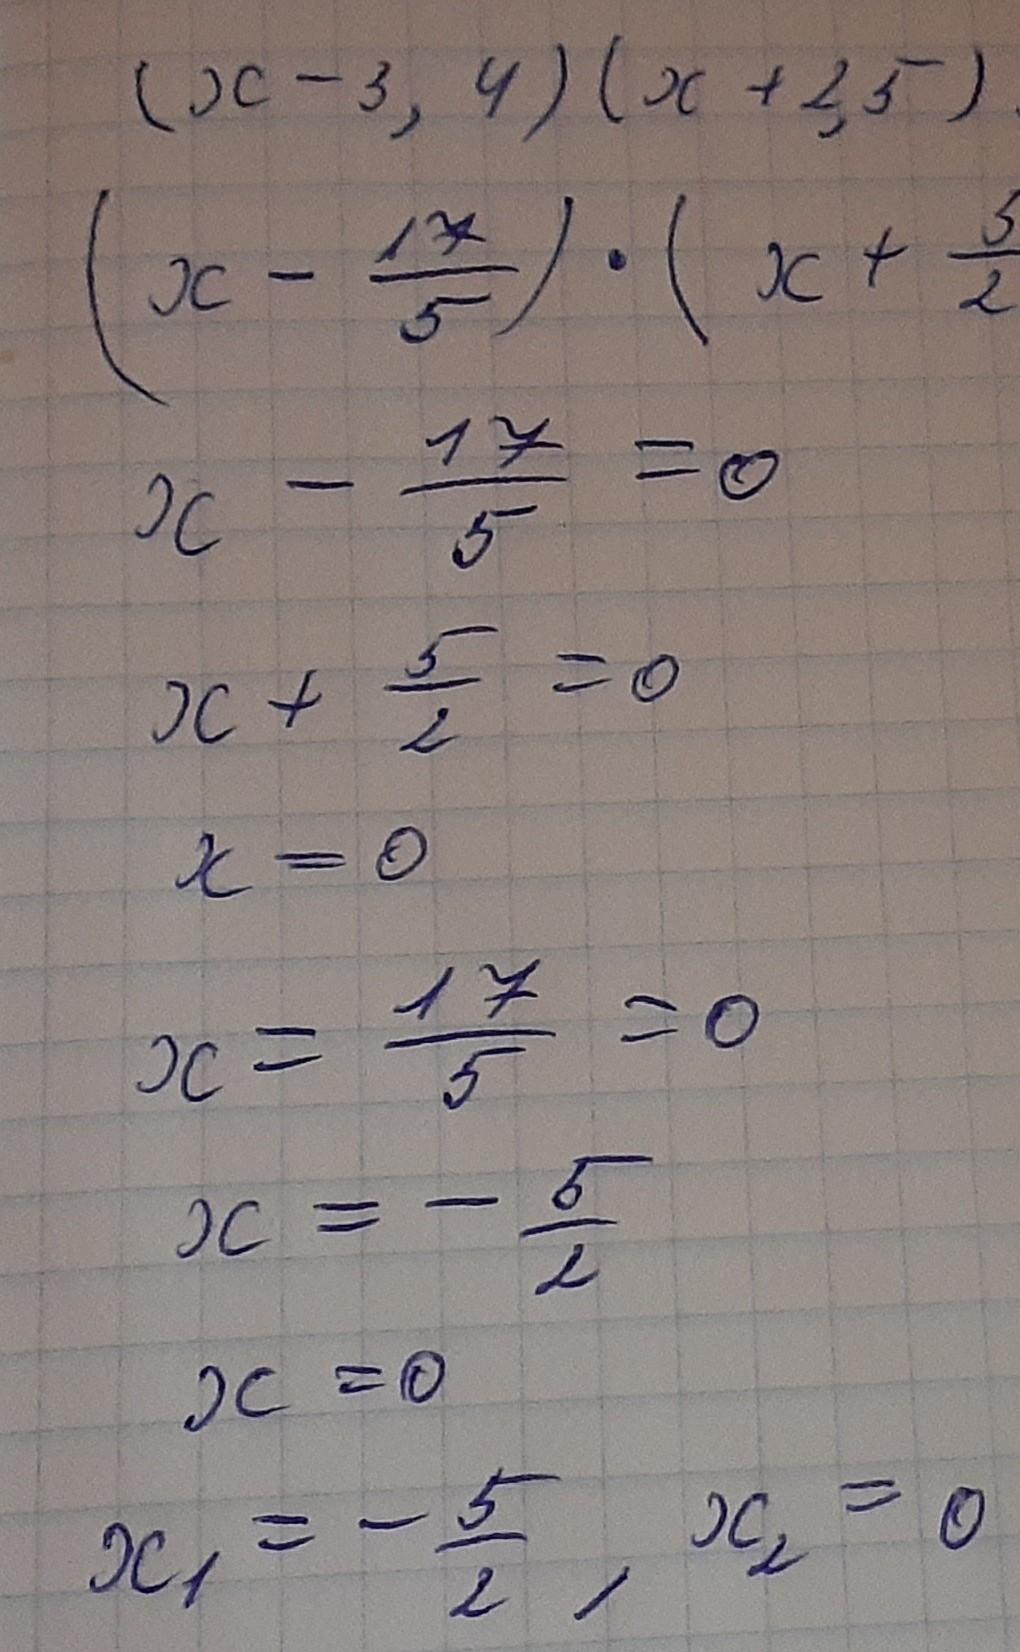 (x - 3,4)(x + 2,5)
(x - 17/5) · (x + 5/2
x - 17/5 = 0
x + 5/2 = 0
x = 0
x = 17/5 = 0
x = - 5/2
x = 0
x₁ = - 5/2 , x₂ = 0